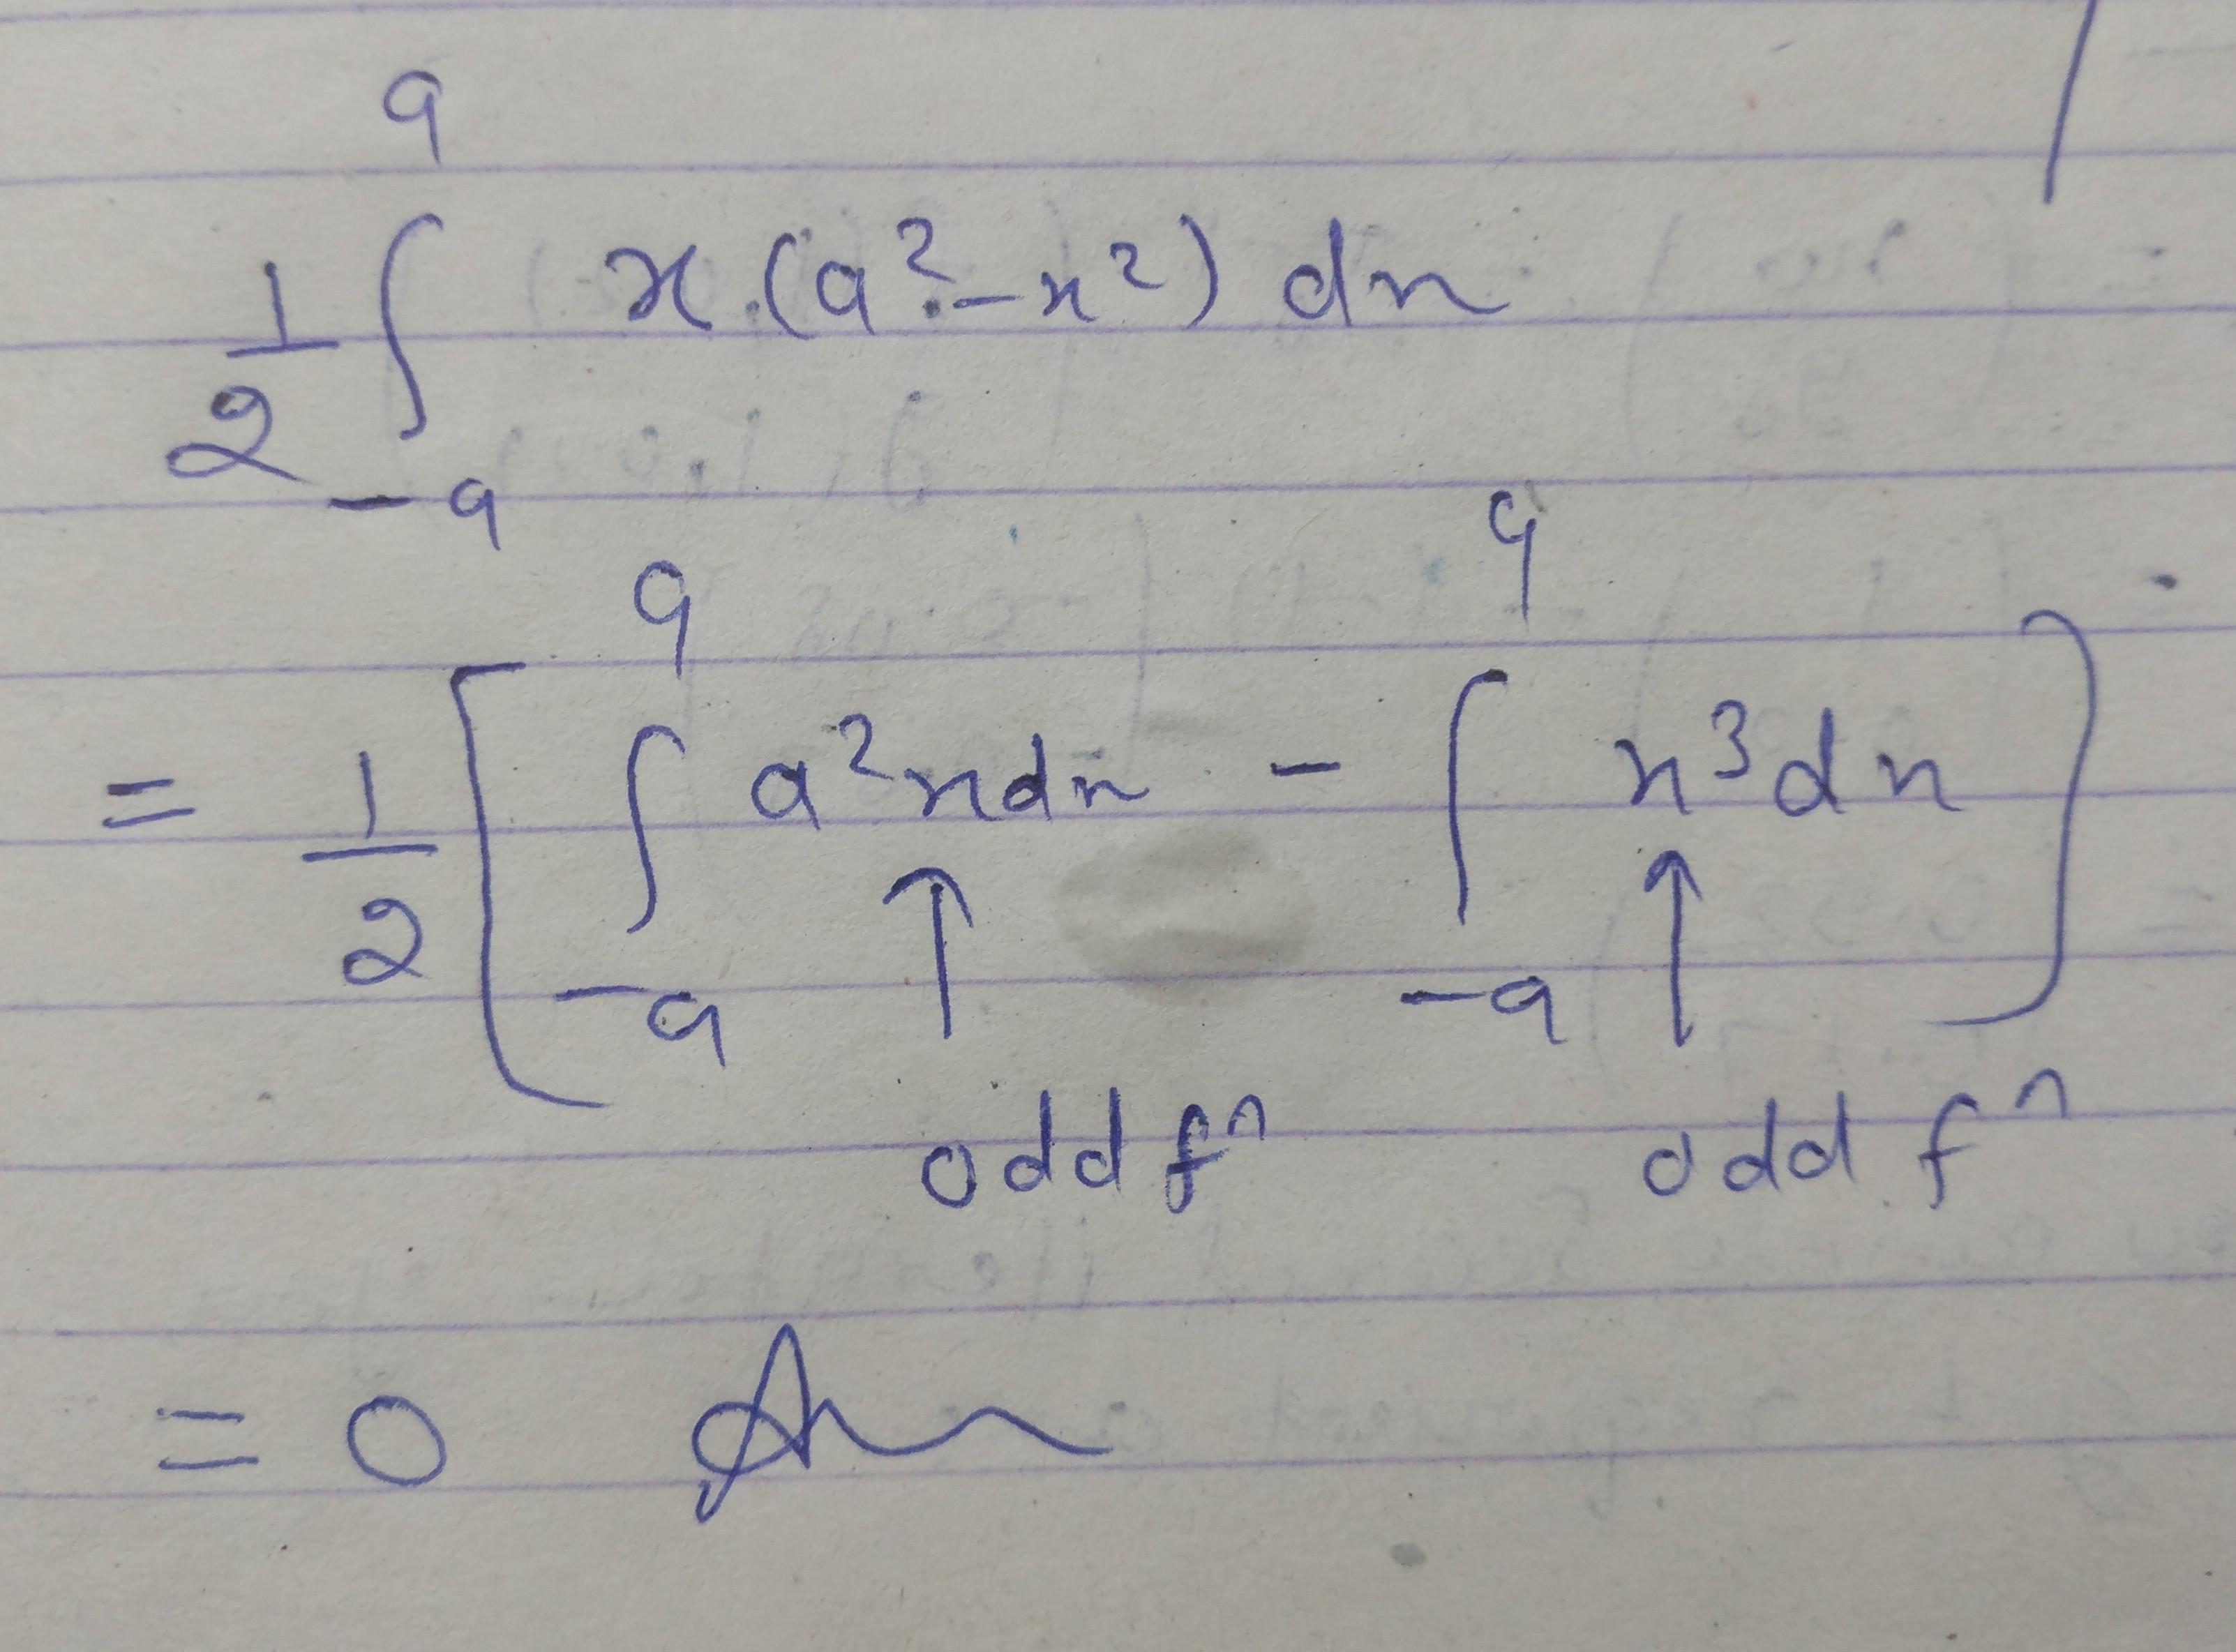 1/2 ∫_{-a}^{a} x (a² - x²) dx
= 1/2 [ ∫_{-a}^{a} a² x dx - ∫_{-a}^{a} x³ dx ]
↑ ↑
odd fⁿ odd fⁿ
= 0 Ans